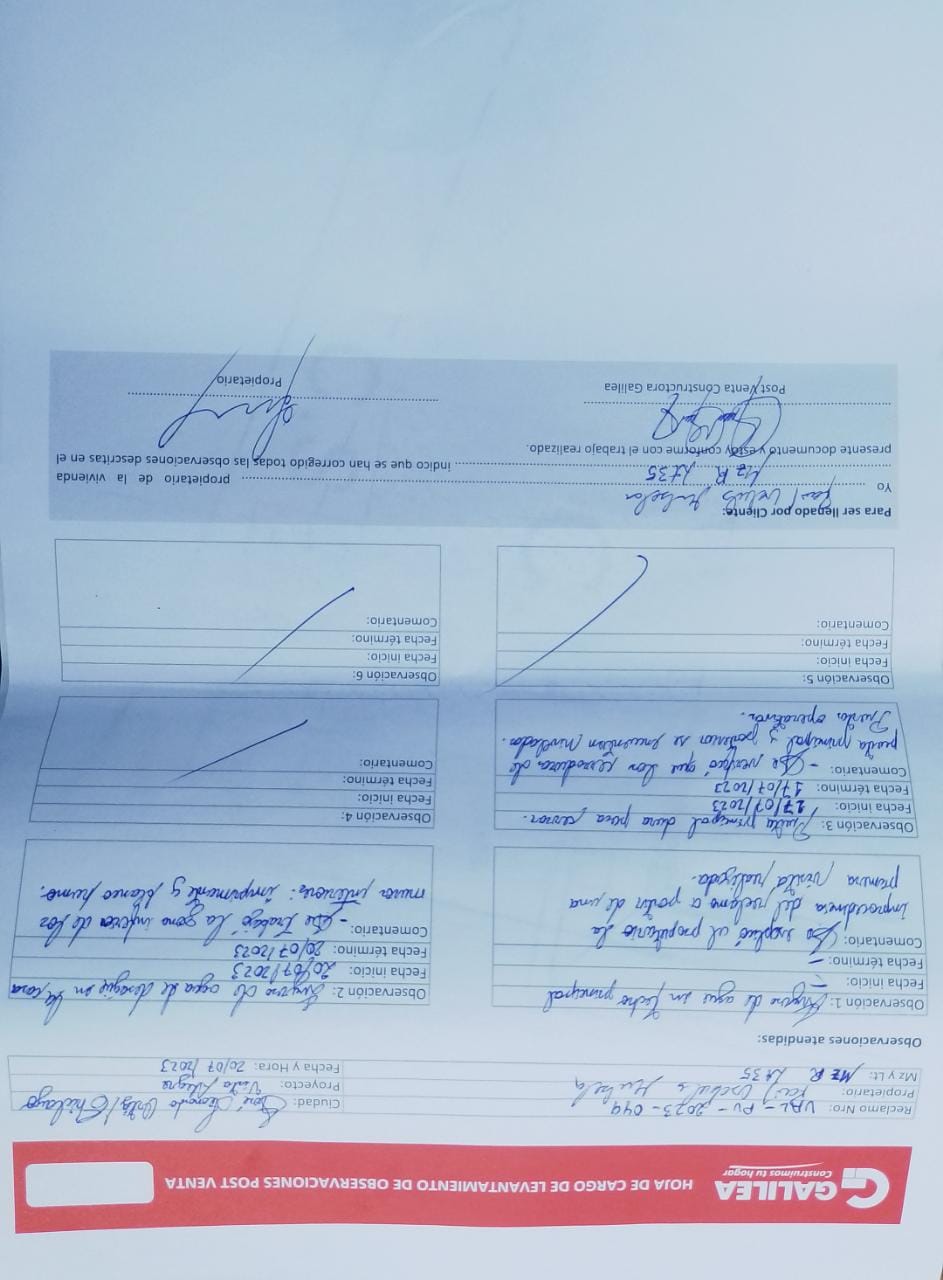 GALILEA
Construimos tu hogar
HOJA DE CARGO DE LEVANTAMIENTO DE OBSERVACIONES POST VENTA
Reclamo Nro: VAL - PV - 2023 - 049
Ciudad: José Leonardo Ortiz / Chiclayo
Propietario:
Proyecto: Vista Alegre
Mz y Lt: Mz R Lt 35
Fecha y Hora: 20/07/2023
Observaciones atendidas:
Observación 1: de agua en techo principal
Fecha inicio: —
Fecha término: —
Comentario: Se explicó al propietario la
improcedencia del reclamo a partir de una
primera visita realizada.
Observación 2: de agua de desagüe en la casa
Fecha inicio: 20/07/2023
Fecha término: 20/07/2023
Comentario: - Se trabajó la zona inferior de los
muros interiores: imprimante y blanco humo.
Observación 3: Puerta principal dura para cerrar.
Fecha inicio: 17/07/2023
Fecha término: 17/07/2023
Comentario: - Se verificó que las cerraduras de
puerta principal y posterior se encuentran niveladas.
Puertas operativas.
Observación 4:
Fecha inicio:
Fecha término:
Comentario:
Observación 5:
Fecha inicio:
Fecha término:
Comentario:
Observación 6:
Fecha inicio:
Fecha término:
Comentario:
Para ser llenado por Cliente:
Yo propietario de la vivienda
Mz R Lt 35 indico que se han corregido todas las observaciones descritas en el
presente documento y estoy conforme con el trabajo realizado.
Post Venta Constructora Galilea
Propietario